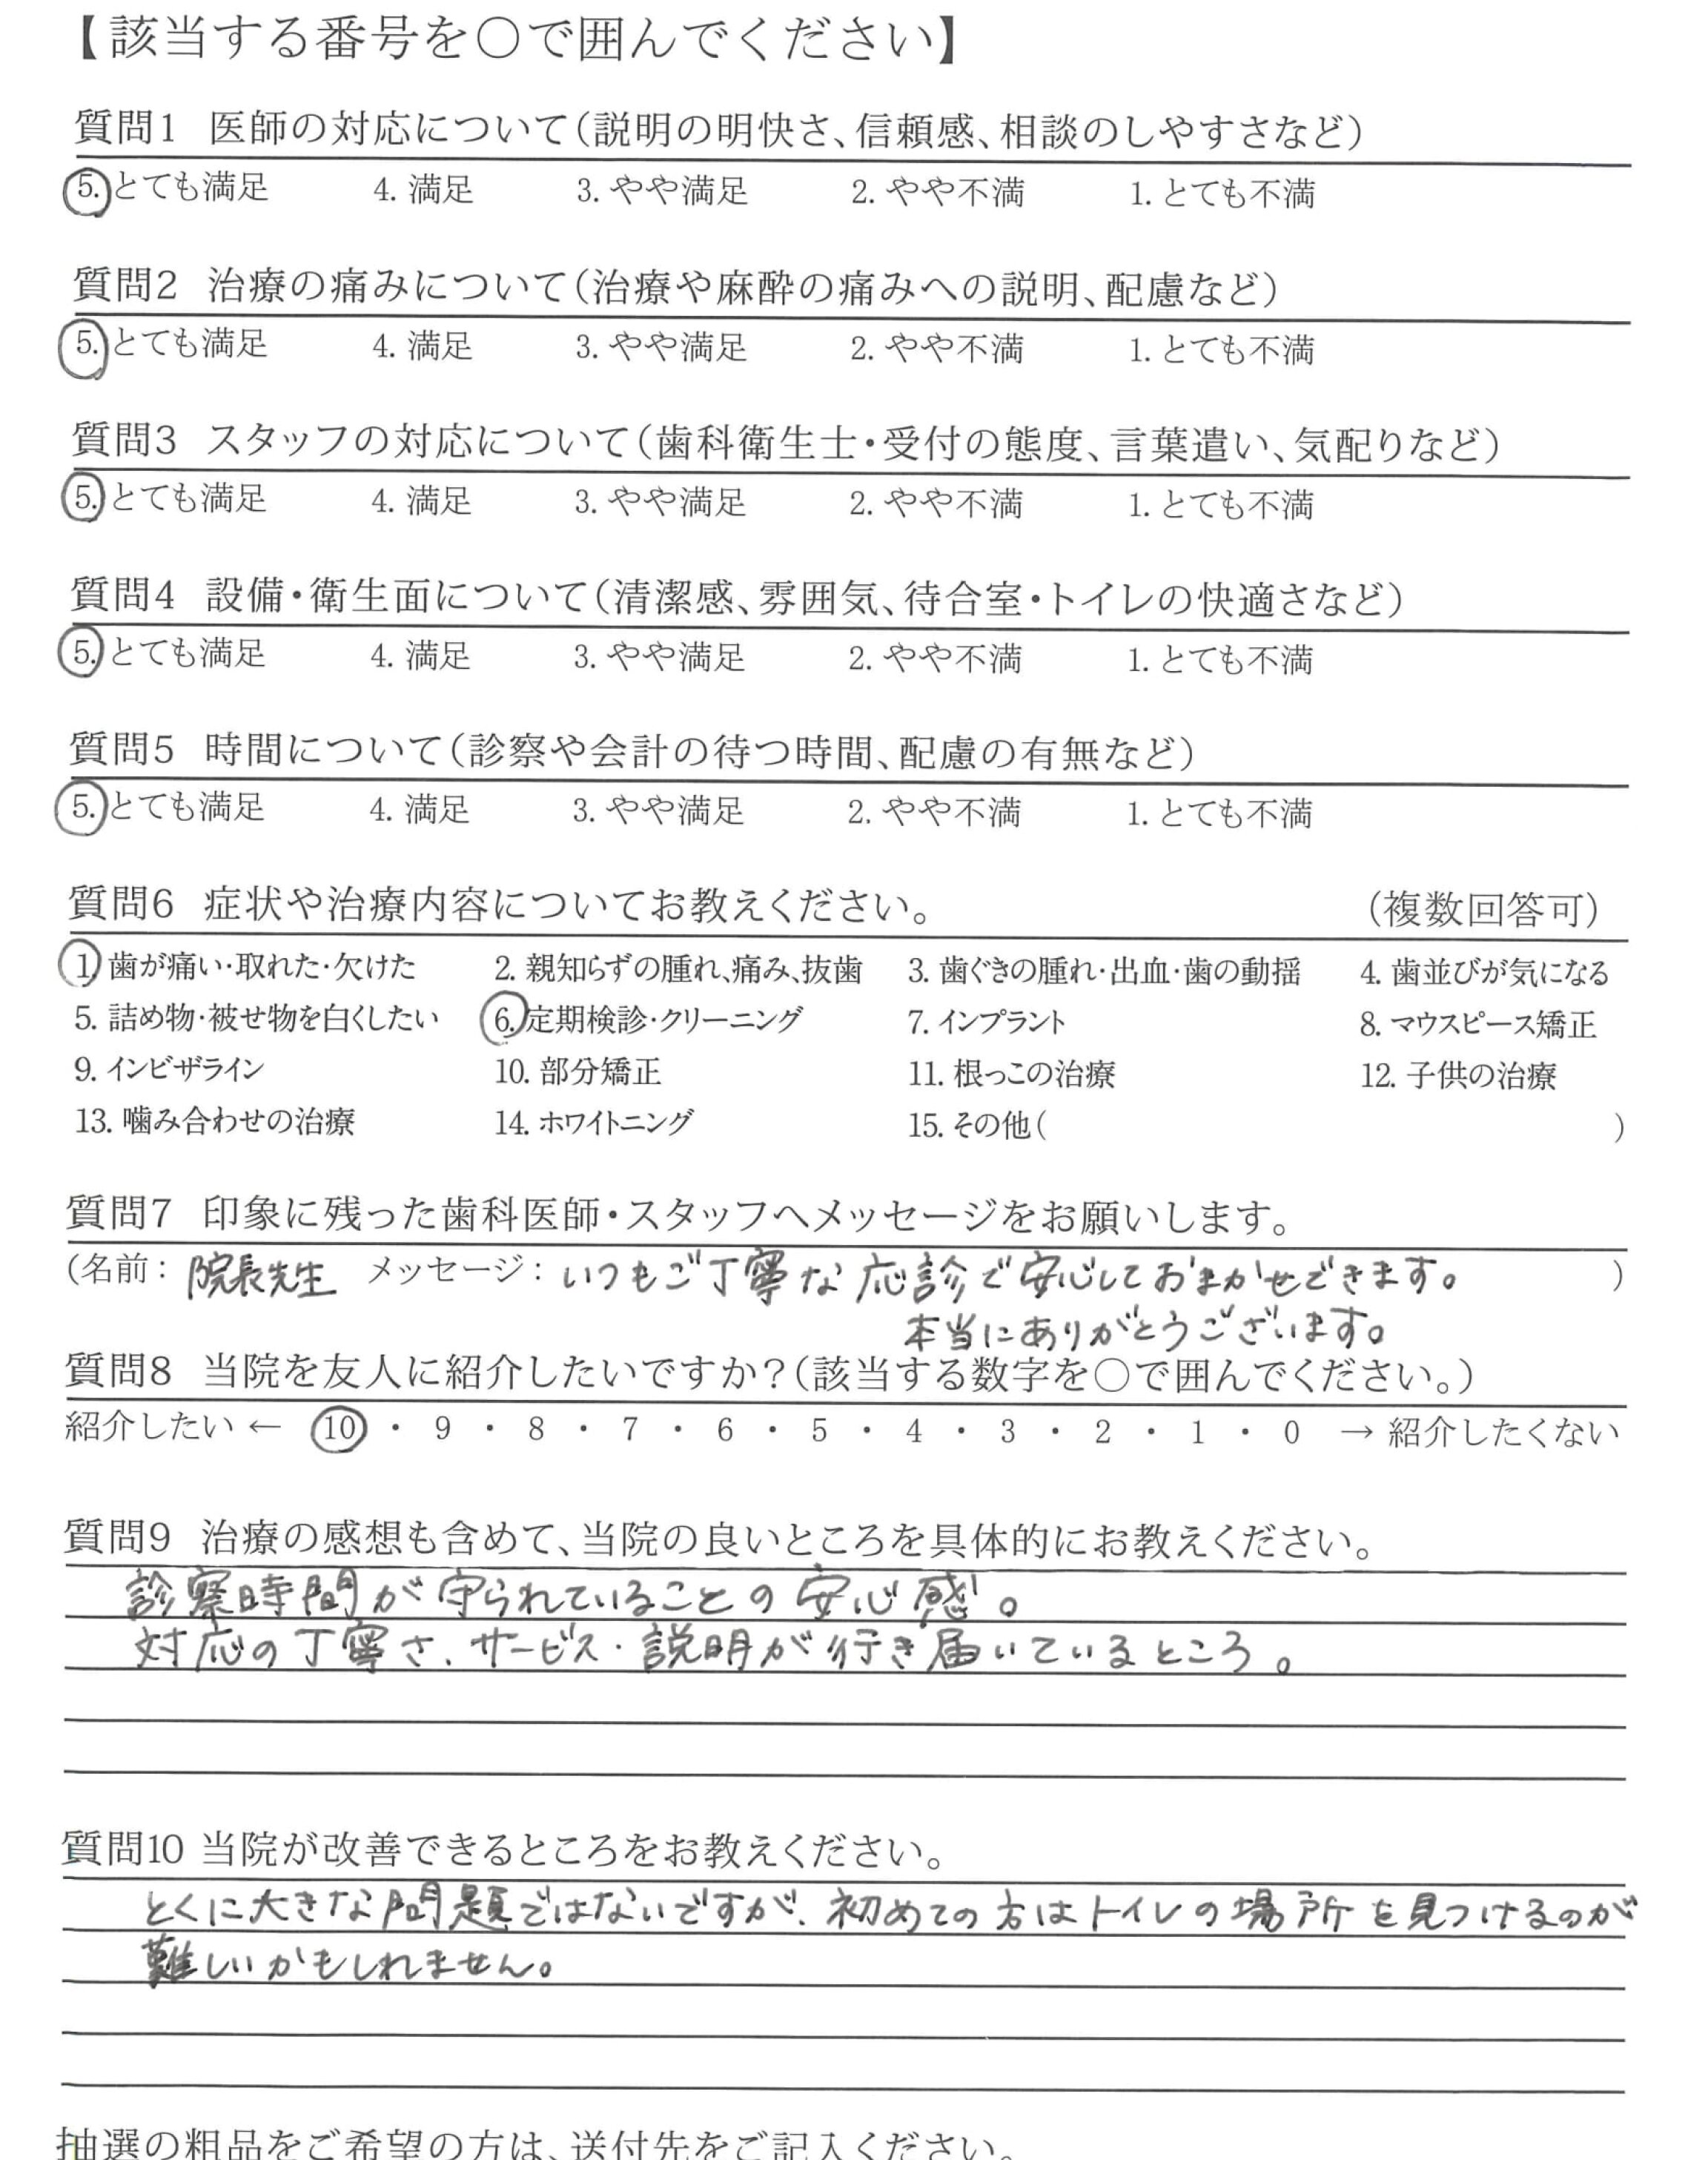 【該当する番号を〇で囲んでください】
質問1 医師の対応について(説明の明快さ、信頼感、相談のしやすさなど)
5. とても満足 4. 満足 3. やや満足 2. やや不満 1. とても不満
質問2 治療の痛みについて(治療や麻酔の痛みへの説明、配慮など)
5. とても満足 4. 満足 3. やや満足 2. やや不満 1. とても不満
質問3 スタッフの対応について(歯科衛生士・受付の態度、言葉遣い、気配りなど)
5. とても満足 4. 満足 3. やや満足 2. やや不満 1. とても不満
質問4 設備・衛生面について(清潔感、雰囲気、待合室・トイレの快適さなど)
5. とても満足 4. 満足 3. やや満足 2. やや不満 1. とても不満
質問5 時間について(診察や会計の待つ時間、配慮の有無など)
5. とても満足 4. 満足 3. やや満足 2. やや不満 1. とても不満
質問6 症状や治療内容についてお教えください。 (複数回答可)
1. 歯が痛い・取れた・欠けた 2. 親知らずの腫れ、痛み、抜歯 3. 歯ぐきの腫れ・出血・歯の動揺 4. 歯並びが気になる
5. 詰め物・被せ物を白くしたい 6. 定期検診・クリーニング 7. インプラント 8. マウスピース矯正
9. インビザライン 10. 部分矯正 11. 根っこの治療 12. 子供の治療
13. 噛み合わせの治療 14. ホワイトニング 15. その他( )
質問7 印象に残った歯科医師・スタッフへメッセージをお願いします。
(名前: 院長先生 メッセージ: いつもご丁寧な応診で安心しておまかせできます。 )
本当にありがとうございます。
質問8 当院を友人に紹介したいですか?(該当する数字を〇で囲んでください。)
紹介したい ← 10 ・ 9 ・ 8 ・ 7 ・ 6 ・ 5 ・ 4 ・ 3 ・ 2 ・ 1 ・ 0 → 紹介したくない
質問9 治療の感想も含めて、当院の良いところを具体的にお教えください。
診察時間が守られていることの安心感。
対応の丁寧さ、サービス・説明が行き届いているところ。
質問10 当院が改善できるところをお教えください。
とくに大きな問題ではないですが、初めての方はトイレの場所を見つけるのが
難しいかもしれません。
抽選の粗品をご希望の方は、送付先をご記入ください。